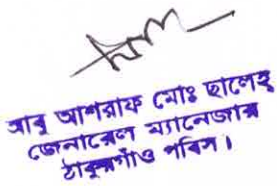 আবু আশরাফ মোঃ ছালেহ্
জেনারেল ম্যানেজার
ঠাকুরগাঁও পবিস।